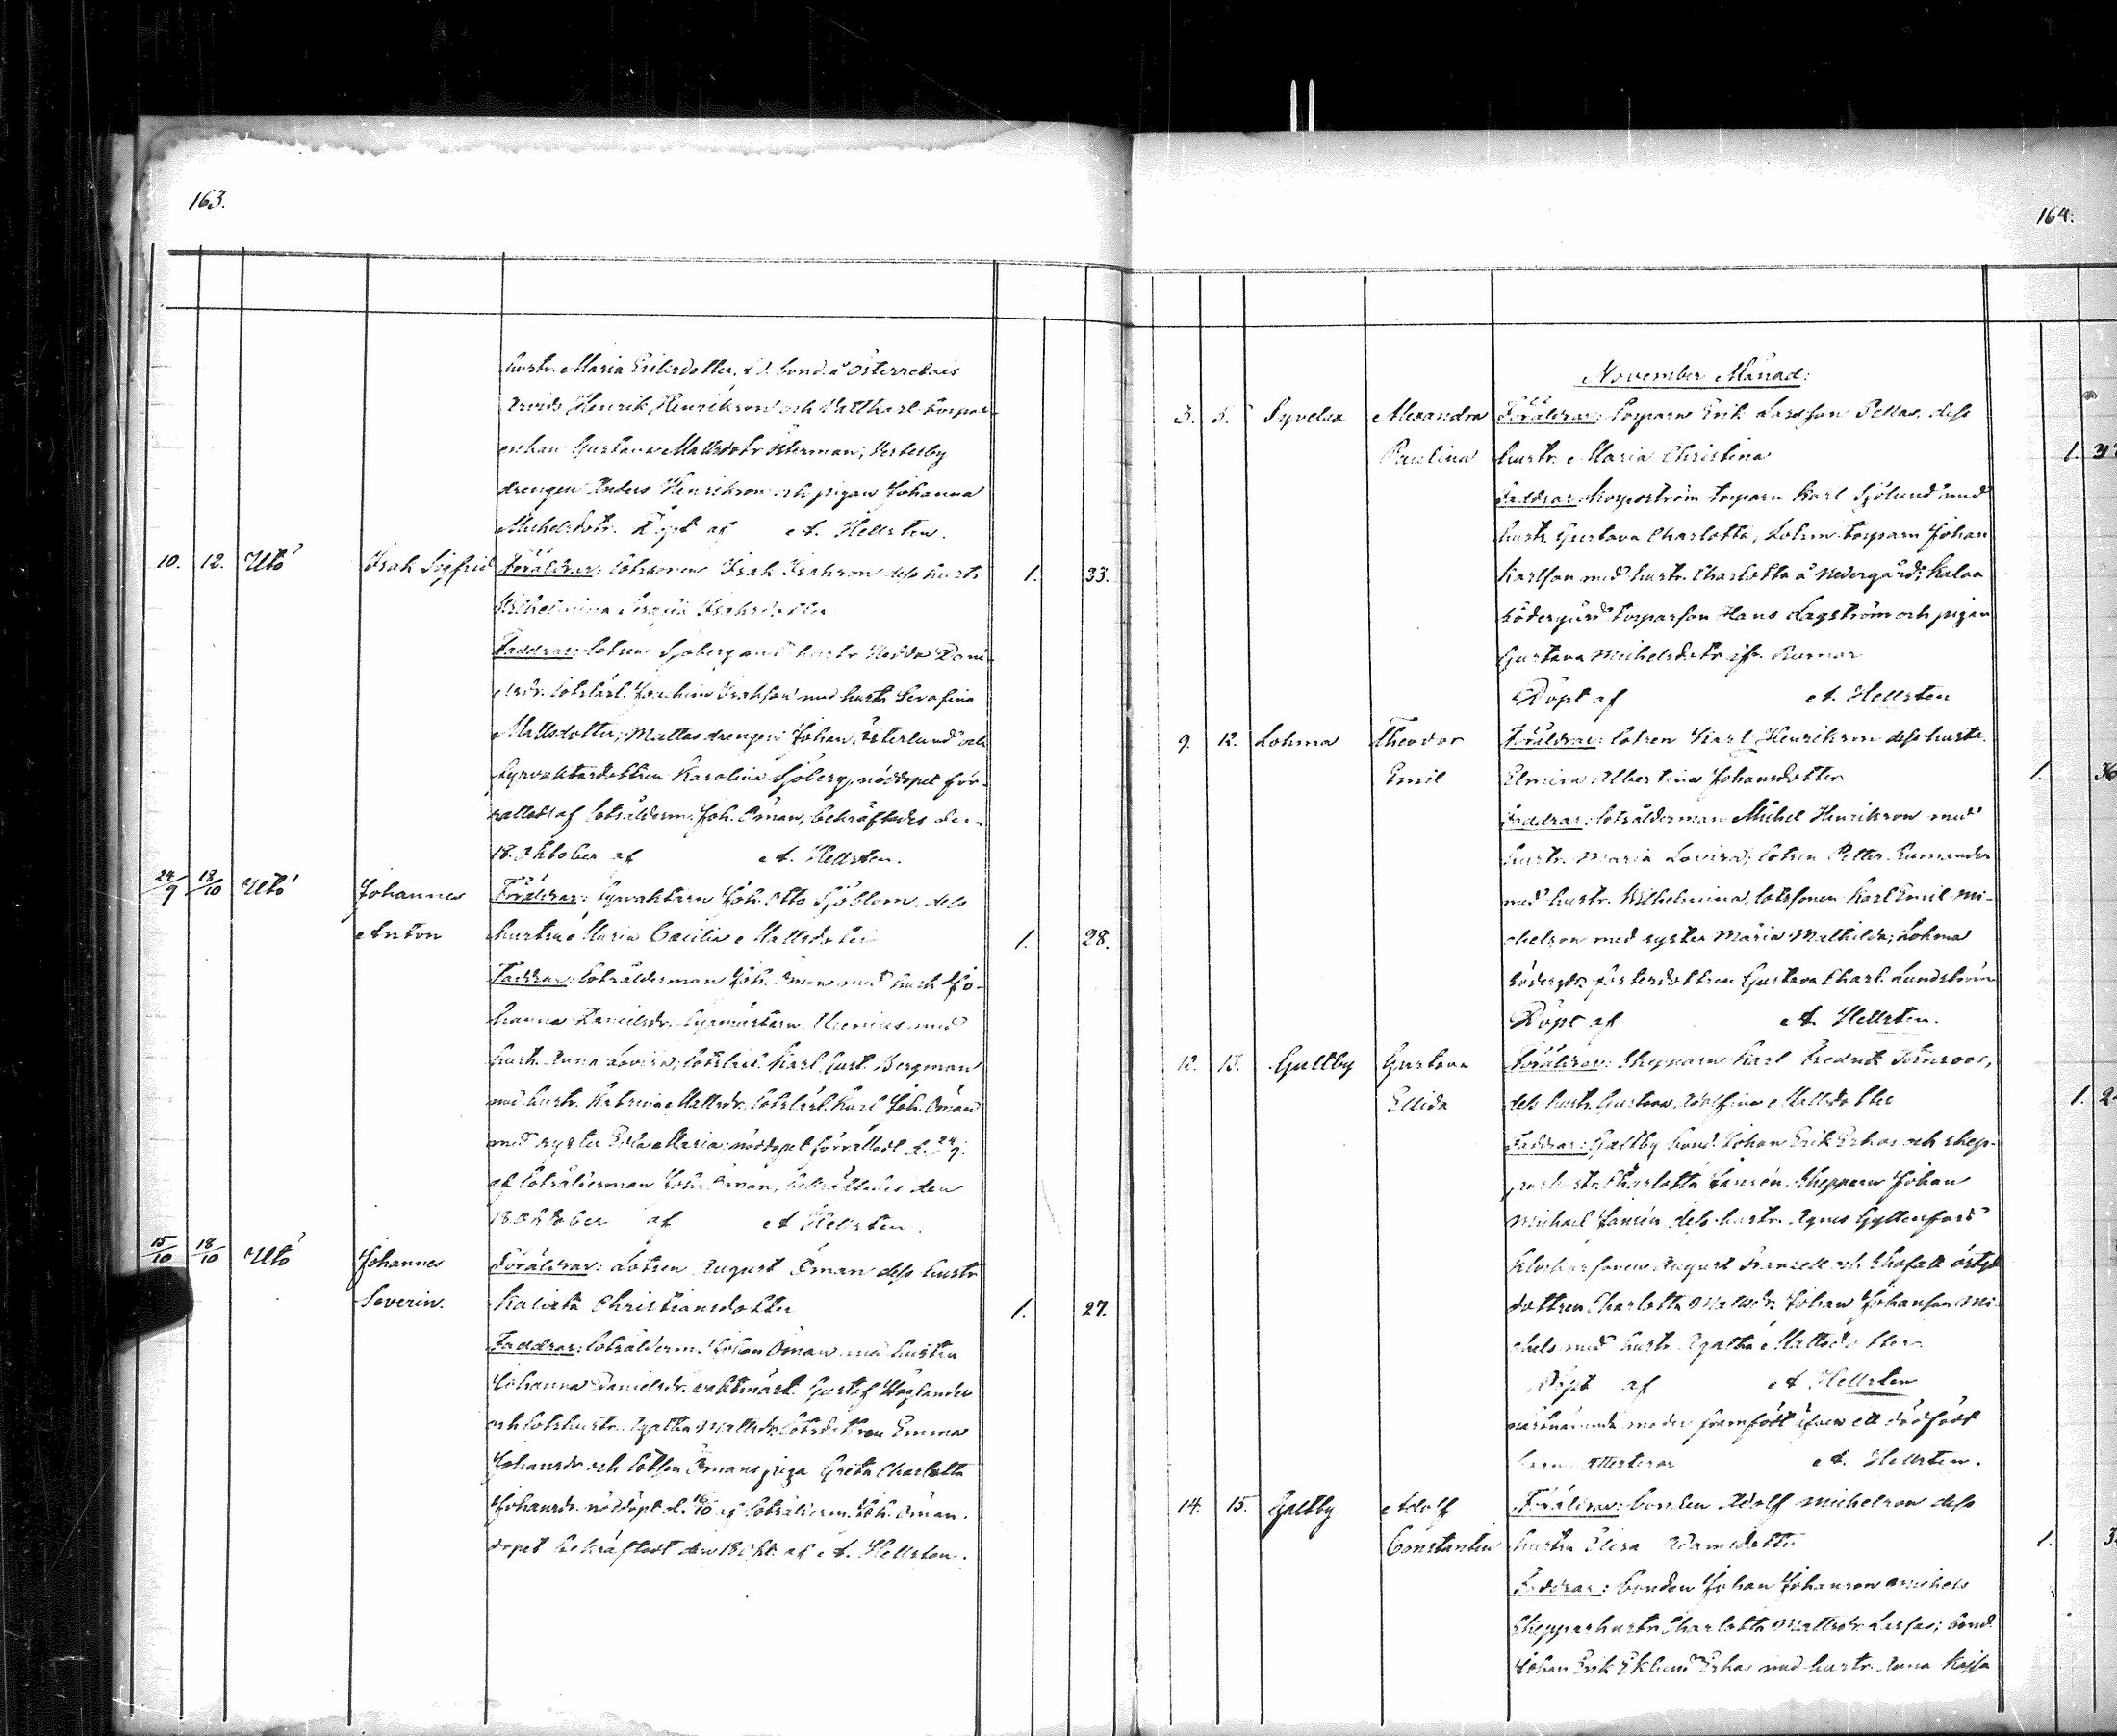 163.
hustr. Maria Eriksdotter, f.d. bond. å Österretais
Arvids Henrik Henrikson och Vattkast torpar-
enkan Gustava Mattsdotr Österman, Vesterby
drengen Anders Henrikson och pigan Johanna
Michelsdotr. Döpt af A. Hellsten.
10. 12. Utö Isak Sigfrid Föräldrar: lotssonen Isak Isakson dess hustr. 1. 33.
Wilhelmina Isaksdotter
Faddrar: lotsen Sjöberg med hustr. Hedda Dani-
elsdr. lotslärl. Joachim Isaksson med hustr. Serafina
Mattsdotter; Mattas drengen Johan Österlund och
fyrvaktardottren Karolina Sjöberg, nöddopet för-
rättadt af lotsålderm. Joh. Öman, bekräftades den
18. Oktober af A. Hellsten.
24/9 18/10 Utö Johannes Föräldrar: fyrvaktarn Joh. Otto Sjöblom, dess
Anton hustru Maria Cecilia Mattsdotter 1. 28.
Faddrar: lotsålderman Joh. Öman med hustr. Jo-
hanna Danielsdr. fyrmästarn med
hustr. Anna Lovisa; lotslärl. Karl Gust. Bergman
med hustr. Katrina Mattsdr. lotslärl. Karl Joh. Öman
med syster Maria; nöddopet förrättadt d. 24/9
af lotsålderman Joh. Öman, bekräftades den
18 Oktober af A. Hellsten.
15/10 18/10 Utö Johannes Föräldrar: Lotsen August Öman dess hustr
Severin. Kalixta Christiansdotter 1. 27.
Faddrar: lotsålderm. Johan Öman med hustru
Johanna Danielsdr. vaktmäst. Gustaf Höglander
och lotshustr. Agatha Mattsdr. lotsdottren Emma
Johansdr och lotsen Ömans piga Greta Charlotta
Johansdr. nöddöpt d. 16/10 af lotsålderm. Joh. Öman.
dopet bekräftadt den 18 Okt. af A. Hellsten.
164.
November Månad:
3. 5. Syvelax Alexandra Föräldrar: torparn Erik Larsson Pellas, dess
Paulina hustr. Maria Christina 1.
Faddrar: Korpoström torparn Karl Sjölund med
hustr. Gustava Charlotta, Lohm torparn Johan
Karlsson med hustr. Charlotta å Nedergård; Kalax
Södergård torparson Hans Lagström och pigan
Gustava Michelsdotr ifr. Rumar
Döpt af A. Hellsten
9. 12. Lohma Theodor Föräldrar: lotsen Karl Henrikson dess hustr.
Emil Elmina Albertina Johansdotter 1. 36
Faddrar: lotsålderman Michel Henrikson med
hustr. Maria Lovisa; lotsen Petter Rumander
med hustr. Wilhelmina, lotssonen Karl Emil Mi-
chelson med syster Maria Mathilda; Lohma
Södergds fosterdottren Gustava Charl. Lundström
Döpt af A. Hellsten.
12. 13. Galtby Gustava Föräldrar: Skepparn Karl Fredrik Törnroos,
Ellida dess hustr. Gustava Adolfina Mattsdotter 1. 2
Faddrar: Galtby bond. Johan Erik Erkas och skep-
parhustr. Charlotta Jansén. Skepparn Johan
Michael Jansén dess hustr. Agnes Gyllenfors
Klockarsonen August Franzell och
dottren Charlotta Mattsdr. Johan Johanson Mi-
chels med hustr. Agatha Mattsdotter
Döpt af A. Hellsten
näst nämnda moder framfödt äfven ett dödfödt
barn. Attesterar A. Hellsten.
14. 15. Galtby Adolf Föräldrar: bonden Adolf Michelson dess
Constantin hustru Adamsdotter 1. 3
Faddrar: bonden Johan Johanson Michels
Skepparhustr Charlotta Mattsdr. bond.
Johan Erik Eklund Erkas med hustr. Anna Kajsa